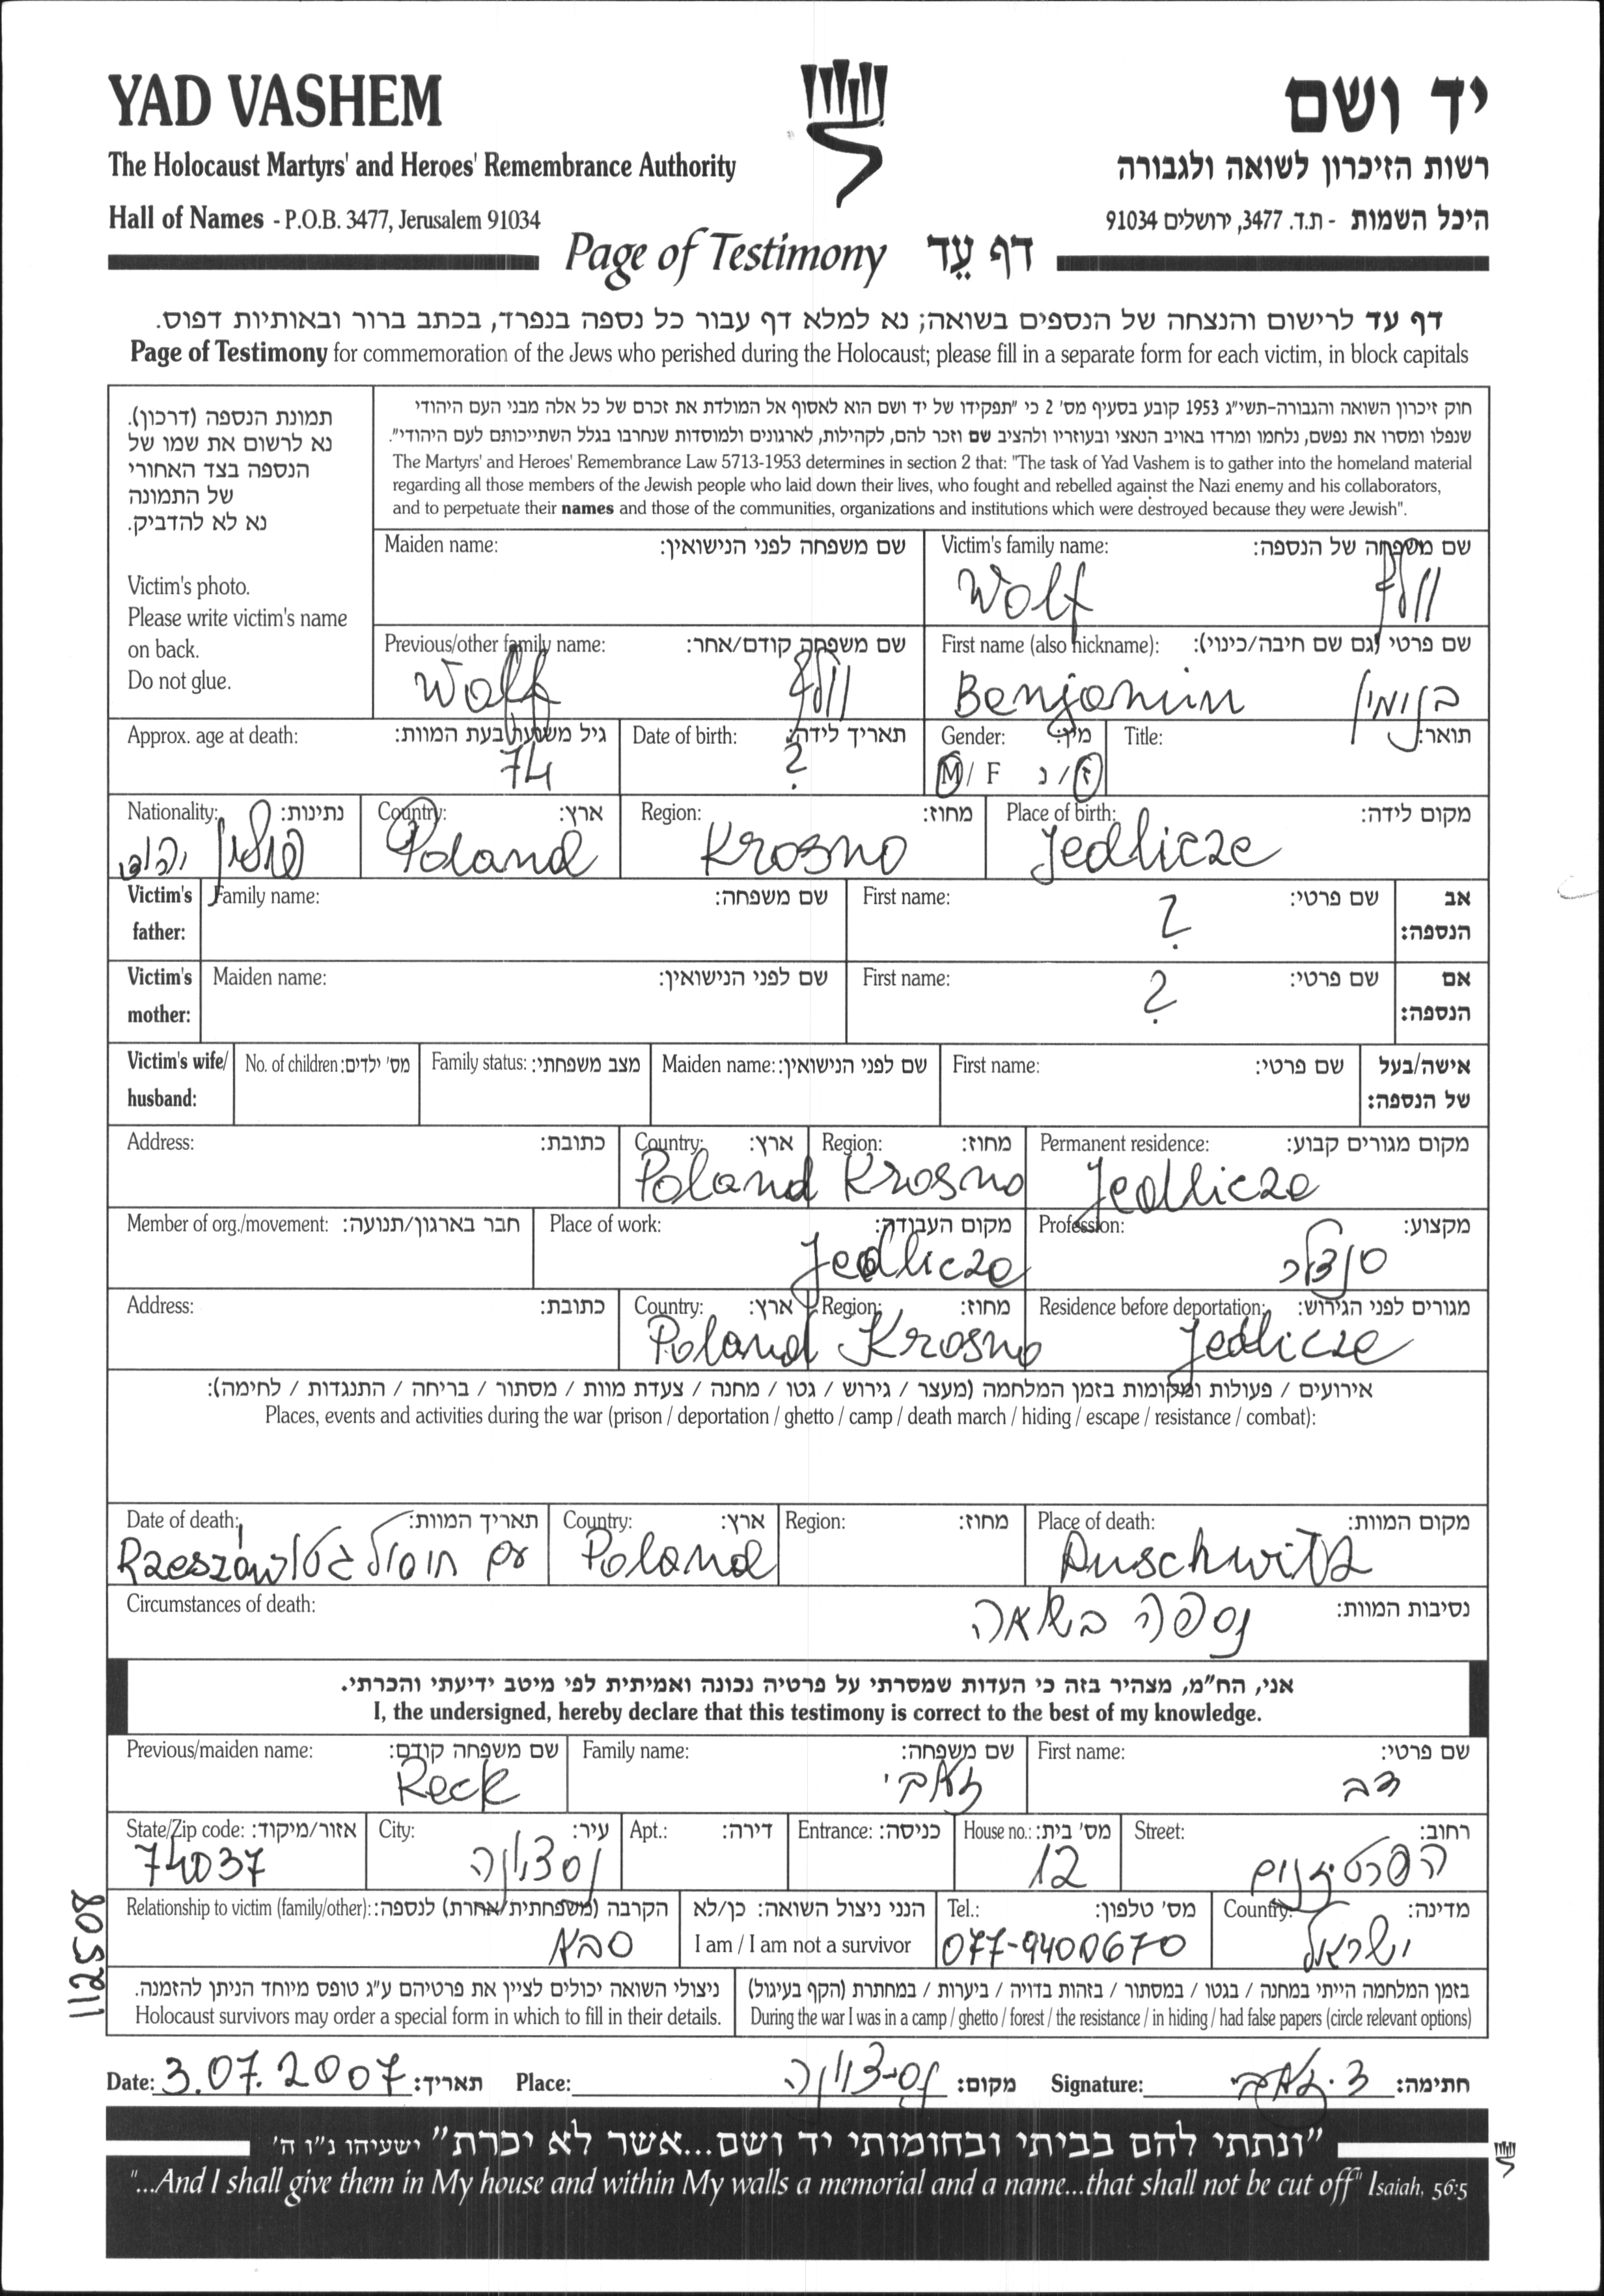 YAD VASHEM
יד ושם
The Holocaust Martyrs' and Heroes' Remembrance Authority
רשות הזיכרון לשואה ולגבורה
Hall of Names - P.O.B. 3477, Jerusalem 91034
היכל השמות - ת.ד. 3477, ירושלים 91034
Page of Testimony דף עֵד
דף עד לרישום והנצחה של הנספים בשואה; נא למלא דף עבור כל נספה בנפרד, בכתב ברור ובאותיות דפוס.
Page of Testimony for commemoration of the Jews who perished during the Holocaust; please fill in a separate form for each victim, in block capitals
תמונת הנספה (דרכון).
נא לרשום את שמו של
הנספה בצד האחורי
של התמונה
נא לא להדביק.
Victim's photo.
Please write victim's name
on back.
Do not glue.
חוק זיכרון השואה והגבורה-תשי"ג 1953 קובע בסעיף מס' 2 כי "תפקידו של יד ושם הוא לאסוף אל המולדת את זכרם של כל אלה מבני העם היהודי
שנפלו ומסרו את נפשם, נלחמו ומרדו באויב הנאצי ובעוזריו ולהציב שם וזכר להם, לקהילות, לארגונים ולמוסדות שנחרבו בגלל השתייכותם לעם היהודי".
The Martyrs' and Heroes' Remembrance Law 5713-1953 determines in section 2 that: "The task of Yad Vashem is to gather into the homeland material
regarding all those members of the Jewish people who laid down their lives, who fought and rebelled against the Nazi enemy and his collaborators,
and to perpetuate their names and those of the communities, organizations and institutions which were destroyed because they were Jewish".
Maiden name: שם משפחה לפני הנישואין:
Victim's family name: שם משפחה של הנספה:
Wolf וולף
Previous/other family name: שם משפחה קודם/אחר:
Wolf וולף
First name (also nickname): שם פרטי (גם שם חיבה/כינוי):
Benjamin בנימין
Approx. age at death: גיל משוער בעת המוות:
74
Date of birth: תאריך לידה:
?
Gender: מין:
M / F ז / נ
Title: תואר:
Nationality: נתינות:
Country: ארץ:
Poland
Region: מחוז:
Krosno
Place of birth: מקום לידה:
Jedlicze
Victim's father: Family name: שם משפחה: First name: שם פרטי: אב הנספה:
?
Victim's mother: Maiden name: שם לפני הנישואין: First name: שם פרטי: אם הנספה:
?
Victim's wife/ husband: No. of children: מס' ילדים: Family status: מצב משפחתי: Maiden name: שם לפני הנישואין: First name: שם פרטי: אישה/בעל של הנספה:
Address: כתובת: Country: ארץ: Region: מחוז: Permanent residence: מקום מגורים קבוע:
Poland Krosno Jedlicze
Member of org./movement: חבר בארגון/תנועה: Place of work: מקום העבודה: Profession: מקצוע:
Jedlicze סנדלר
Address: כתובת: Country: ארץ: Region: מחוז: Residence before deportation: מגורים לפני הגירוש:
Poland Krosno Jedlicze
אירועים / פעולות ומקומות בזמן המלחמה (מעצר / גירוש / גטו / מחנה / צעדת מוות / מסתור / בריחה / התנגדות / לחימה):
Places, events and activities during the war (prison / deportation / ghetto / camp / death march / hiding / escape / resistance / combat):
Date of death: תאריך המוות: Country: ארץ: Region: מחוז: Place of death: מקום המוות:
עם חוסול גטו Rzeszów Poland Auschwitz
Circumstances of death: נסיבות המוות:
נספה בשואה
אני, הח"מ, מצהיר בזה כי העדות שמסרתי על פרטיה נכונה ואמיתית לפי מיטב ידיעתי והכרתי.
I, the undersigned, hereby declare that this testimony is correct to the best of my knowledge.
Previous/maiden name: שם משפחה קודם: Family name: שם משפחה: First name: שם פרטי:
Reck זאבי צבי
State/Zip code: אזור/מיקוד: City: עיר: Apt.: דירה: Entrance: כניסה: House no.: מס' בית: Street: רחוב:
74037 נס ציונה 12 הפרטיזנים
Relationship to victim (family/other): הקרבה (משפחתית/אחרת) לנספה: הנני ניצול השואה: כן/לא Tel.: מס' טלפון: Country: מדינה:
סבא I am / I am not a survivor 077-9400670 ישראל
112508
ניצולי השואה יכולים לציין את פרטיהם ע"ג טופס מיוחד הניתן להזמנה.
Holocaust survivors may order a special form in which to fill in their details.
בזמן המלחמה הייתי במחנה / בגטו / במסתור / בזהות בדויה / ביערות / במחתרת (הקף בעיגול)
During the war I was in a camp / ghetto / forest / the resistance / in hiding / had false papers (circle relevant options)
Date: 3.07.2007 תאריך: Place: נס-ציונה מקום: Signature: צ. זאבי חתימה:
"ונתתי להם בביתי ובחומותי יד ושם...אשר לא יכרת" ישעיהו נ"ו ה'
"...And I shall give them in My house and within My walls a memorial and a name...that shall not be cut off" Isaiah, 56:5